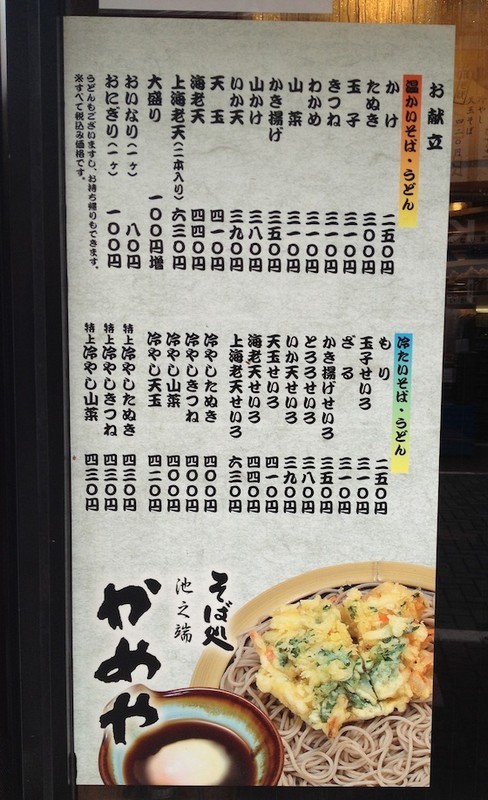 お献立
温かいそば・うどん
かけ 二五〇円
たぬき 三〇〇円
玉子 三一〇円
きつね 三一〇円
わかめ 三一〇円
山菜 三一〇円
かき揚げ 三五〇円
山かけ 三八〇円
いか天 三九〇円
天玉 四一〇円
海老天 四四〇円
上海老天(二本入り) 六三〇円
大盛り 一〇〇円増
おいなり(一ヶ) 八〇円
おにぎり(一ヶ) 一〇〇円
うどんもございますし、お持ち帰りもできます。
※すべて税込み価格です。
冷たいそば・うどん
もり 二五〇円
玉子せいろ 三一〇円
ざる 三一〇円
かき揚げせいろ 三五〇円
とろろせいろ 三八〇円
いか天せいろ 三九〇円
天玉せいろ 四一〇円
海老天せいろ 四四〇円
上海老天せいろ 六三〇円
冷やしたぬき 四〇〇円
冷やしきつね 四〇〇円
冷やし山菜 四〇〇円
冷やし天玉 四二〇円
特上冷やしたぬき 四三〇円
特上冷やしきつね 四三〇円
特上冷やし山菜 四三〇円
そば処
池之端
かめや